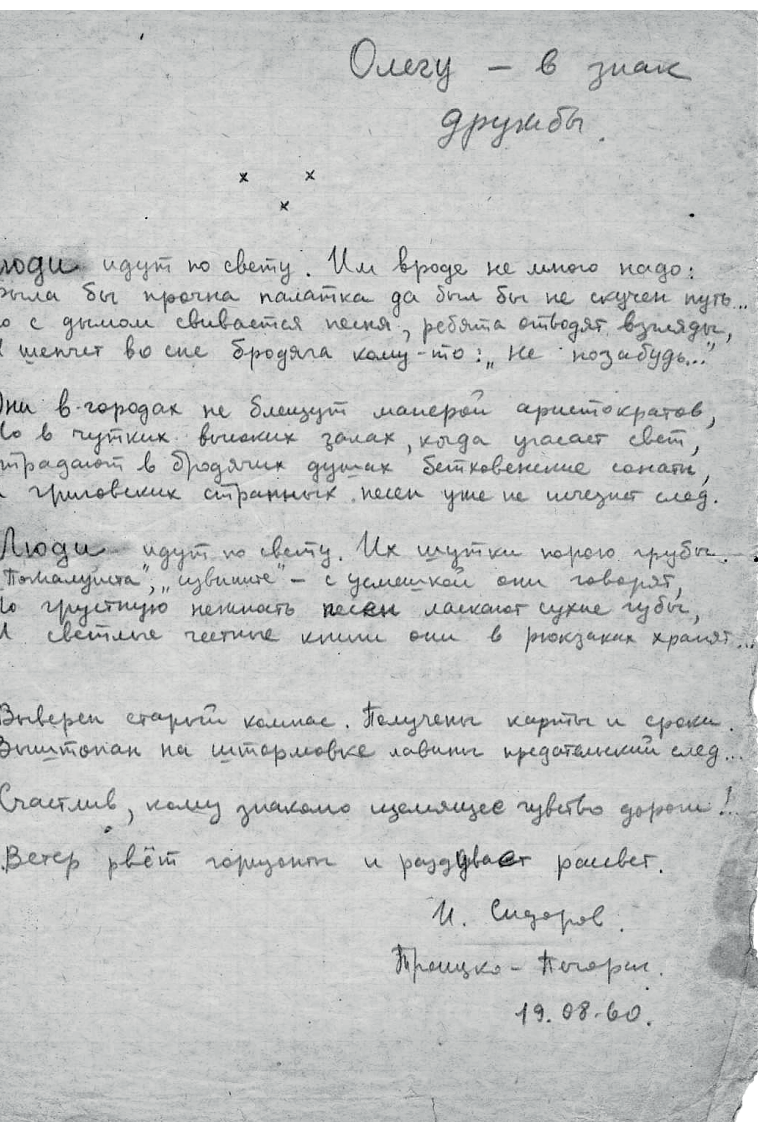 Олегу – в знак
дружбы.
х х
х
юди идут по свету. Им вроде не много надо:
была бы прочна палатка да был бы не скучен путь...
о с дымом свивается песня, ребята отводят взгляды,
И шепчет во сне бродяга кому-то: „Не позабудь..."
Они в городах не блещут манерой аристократов,
Но в чутких высоких залах, когда угасает свет,
страдают в бродячих душах бетховенские сонаты,
и григовских странных песен уже не исчезнет след.
Люди идут по свету. Их шутки порою грубы.
„Пожалуйста", „извините" – с усмешкой они говорят,
Но грустную нежность песен ласкают сухие губы,
И светлые честные книги они в рюкзаках хранят...
Выверен старый компас. Получены карты и сроки.
Выштопан на штормовке лавины предательский след...
Счастлив, кому знакомо щемящее чувство дороги!
Ветер рвёт горизонты и раздувает рассвет.
И. Сидоров.
Троицко-Печорск.
19.08.60.